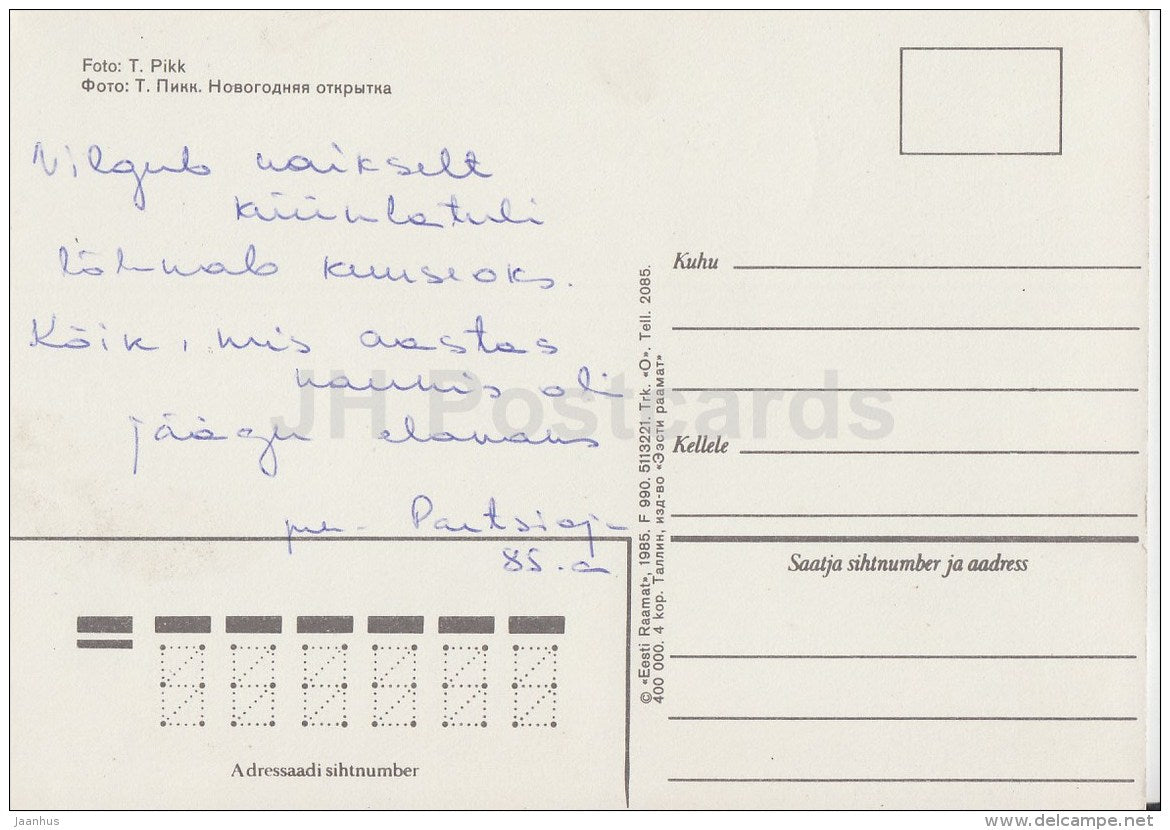 Foto: T. Pikk
Фото: Т. Пикк. Новогодняя открытка
Vilgub vaikselt
küünlatuli
lõhnab kuuseoks.
Kõik, mis aastas
kaunis oli
jäägu elavaks
85. a
Kuhu
Kellele
Saatja sihtnumber ja aadress
© «Eesti Raamat», 1985. F 990. 5113221. Trk. «O». Tell. 2085.
400 000. 4 kop. Таллин, изд-во «Ээсти раамат»
Adressaadi sihtnumber
JH Postcards
Jaanhus
www.delcampe.net